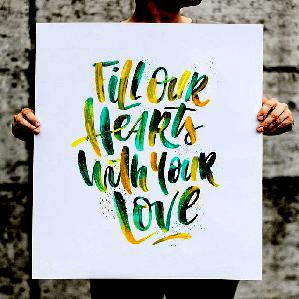 Fill our
Hearts
with your
Love